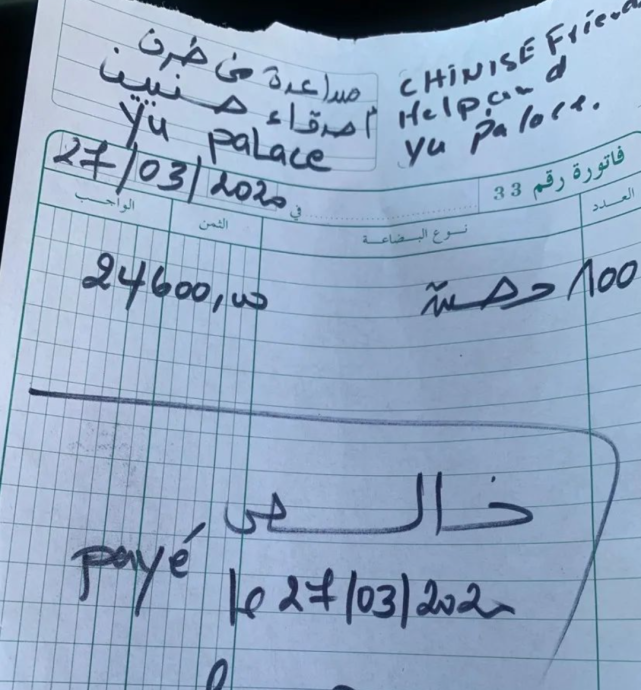 مساعدة من طرف
أصدقاء صنيين
Yu PaLace
CHINISE Friend
Help and
Yu Palace.
27/03/2020 في
فاتورة رقم 33
العدد نوع البضاعة الثمن الواجب
100 حصة 24600,00
خالص
payé le 27/03/2020